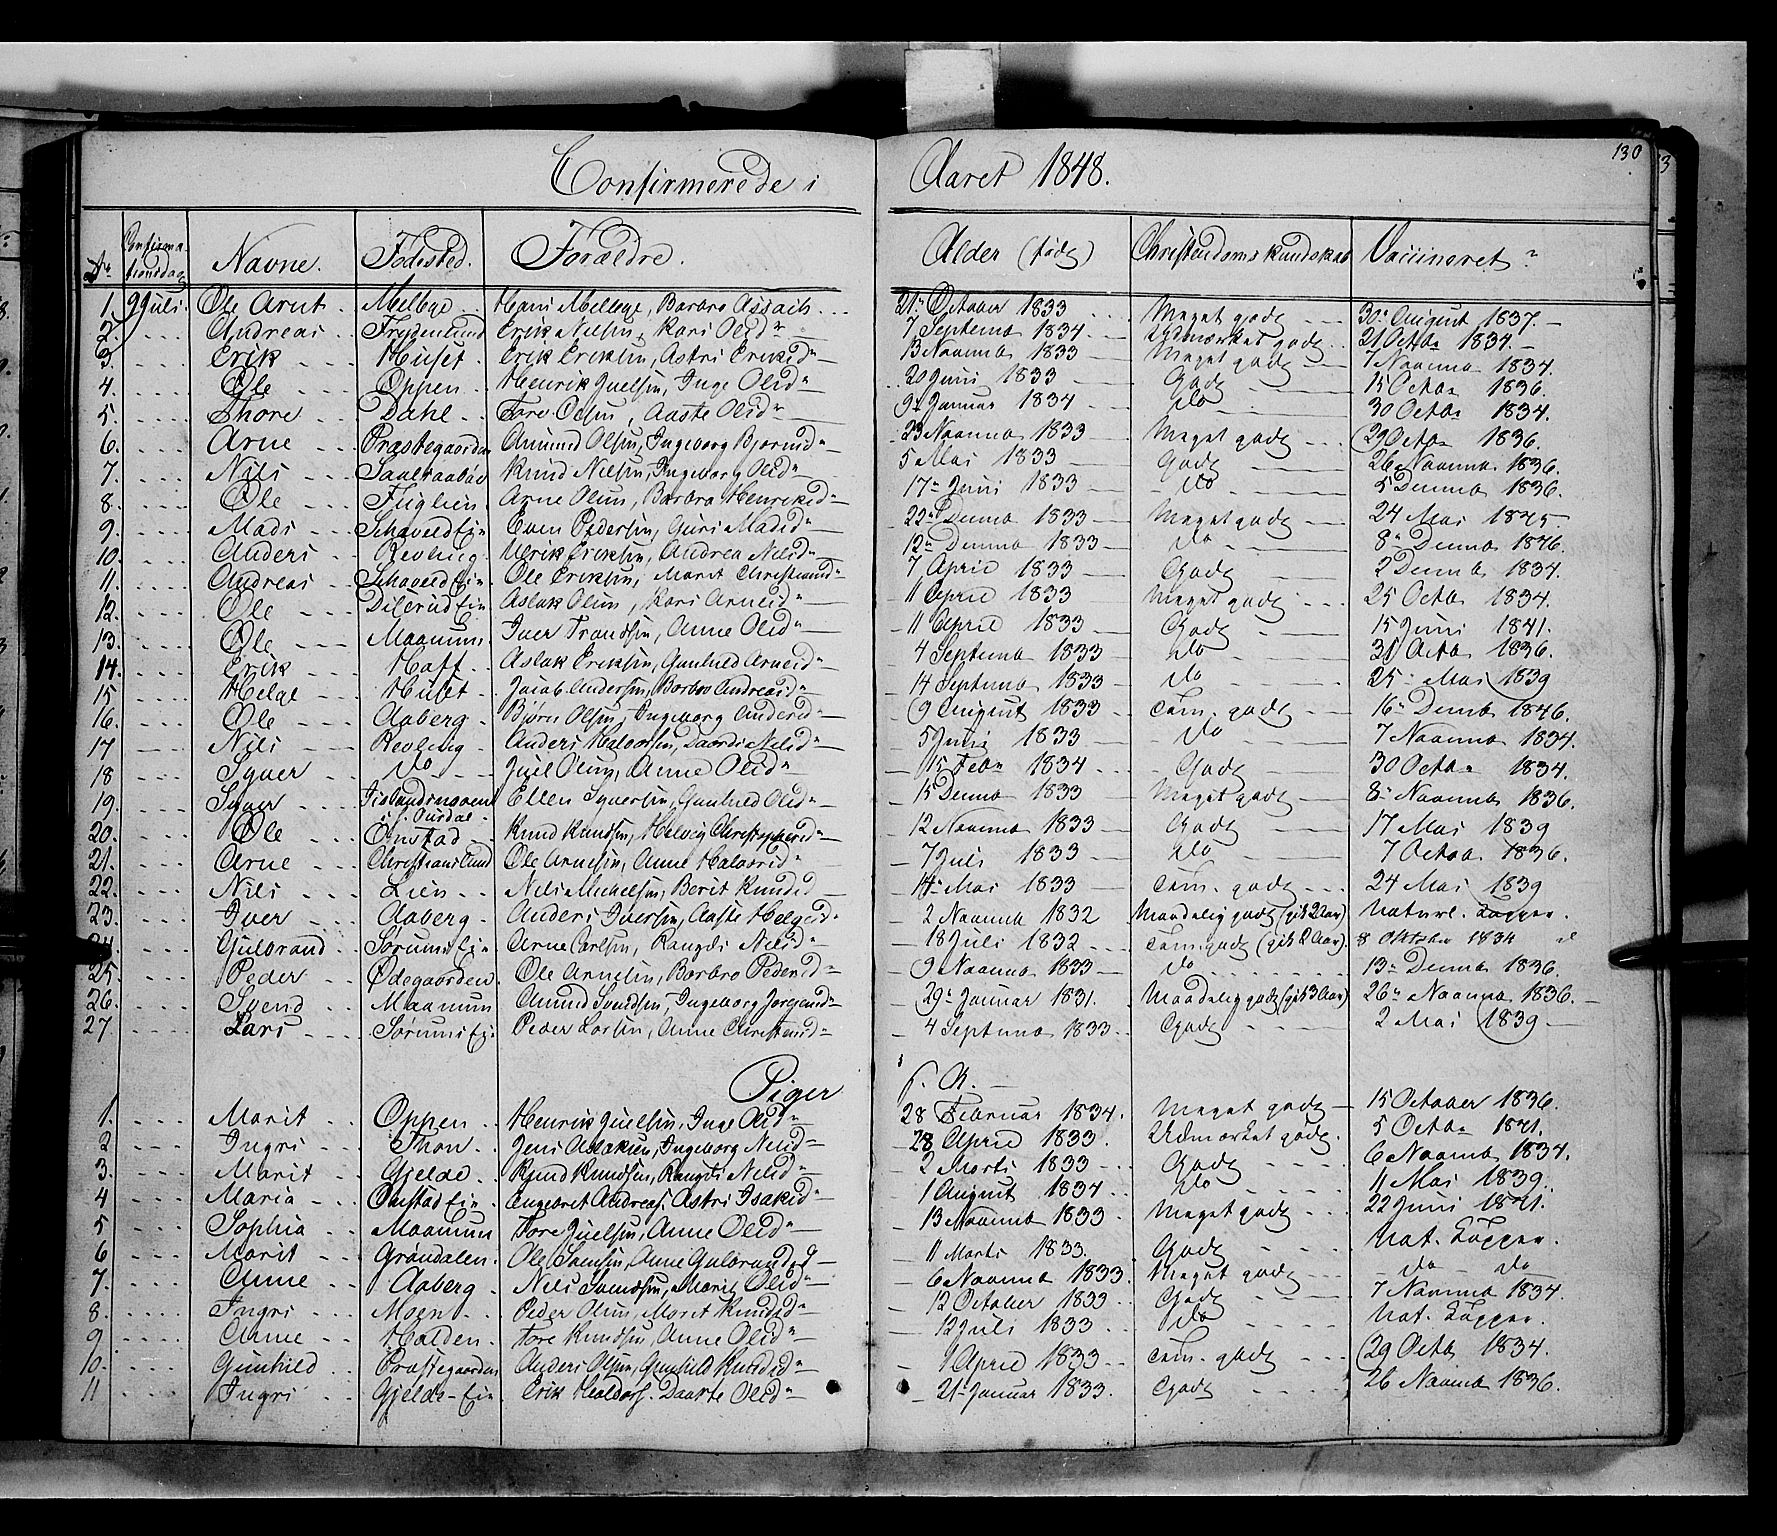 130
Confirmerede i Aaret 1848.
No Confirmationsdag Navne. Fødested. Forældre. Alder (født) Christendomskundskab Vaccineret?
1. 9 Juli. Ole Arnt Melbye Hans Melbye, Barbro Assails 21 October 1833 Meget godt 30 August 1837.
2. Andreas Frydenlund Erik Nilsen, Kari Olsd 7 Septemb 1834 Udmærket godt 21 Octbr 1834.
3. Erik Huset Erik Eriksen, Astri Eriksd 13 Novemb 1833 Meget godt 7 Novemb 1834.
4. Ole Oppen Henrik Juelsen, Inge Olsd 20 Juni 1833 Godt 15 Octbr 1836.
5. Thore Dahl Tore Olsen, Aaste Olsd 9 Januar 1834 do 30 Octbr 1834.
6. Arne Præstegaarden Amund Olsen, Ingeborg Bjørnsd 23 Novemb 1833 Meget godt 29 Octbr 1836.
7. Nils Knud Nilsen, Ingeborg Olsd 5 Mai 1833 Godt 26 Novemb 1836.
8. Ole Fliglien Arne Olsen, Barbro Henriksd 17 Juni 1833 do 5 Decemb 1836.
9. Mads Skaveld Ein Even Pedersen, Guri Madsd 22 Decemb 1833 Meget godt 24 Mai 1845.
10. Anders Revling Ulrik Eriksen, Andrea Nilsd 12 Decemb 1833 do 8 Decemb 1846.
11. Andreas Skaveld Ein Ole Eriksen, Marit Christiansd 7 April 1833 Godt 2 Decemb 1834.
12. Ole Dilerud Ein Aslak Olsen, Kari Arnesd 11 April 1833 Meget godt 25 Octbr 1834.
13. Ole Maanum Iver Trondsen, Anne Olsd 11 April 1833 Godt 15 Juni 1841.
14. Erik Haff Aslak Eriksen, Gunhild Arnesd 4 Septemb 1833 do 31 Octbr 1836.
15 Helge Huset Jacob Andersen, Barbro Andreasd 14 Septemb 1833 do 25 Mai 1839
16. Ole Aaberg Bjørn Olsen, Ingeborg Andersd 9 August 1833 Tem. godt 16 Decemb 1846.
17 Nils Revling Anders Halvorsen, Nilsd 5 Juni 1833 do 7 Novemb 1834.
18 Syver do Juel Olsen, Anne Olsd 15 Febr 1834 Godt 30 Octbr 1834.
19. Syver i S. Ourdal Ellen Syversen, Gunhild Olsd 15 Decemb 1833 Meget godt 8 Novemb 1836.
20. Ole Onstad Knud Knudsen, Helvig Christophersd 12 Novemb 1833 Godt 17 Mai 1839
21. Arne Christianslund Ole Arnesen, Anne Halvorsd 7 Juli 1833 do 7 Octob 1836.
22. Nils Lien Nils Michelsen, Berit Knudsd 14 Mai 1833 Tem. godt 24 Mai 1839
23. Iver Aaberg Anders Iversen, Aaste Helgesd 2 Novemb 1832 Maadelig godt (gik 2 Aar) Naturl. Kopper.
24. Gulbrand Sørums Ein Arne Carlsen, Rangdi Nilsd 18 Juli 1832 Tem. godt (gik 2 Aar) 8 Oktober 1834
25. Peder Ødegaarden Ole Arnesen, Barbro Pedersd 9 Novemb 1833 do 13 Decemb 1836.
26. Svend Maanum Amund Svendsen, Ingeborg Jørgensd 29 Januar 1831. Maadelig godt (gik 3 Aar) 26 Novemb 1836.
27 Lars Sørums Ein Peder Larsen, Anne Christensd 4 Septemb 1833 Godt 2 Mai 1839
Piger
1. Marit Oppen Henrik Juelsen, Inge Olsd 28 Februar 1834. Meget godt 15 October 1836.
2 Ingri Thon Jens Aslaksen, Ingeborg Nilsd 28 April 1833. Udmærket godt. 5 Octbr 1841.
3. Marit Gjelde Knud Knudsen, Rangdi Nilsd 2 Marts 1833 Godt 6 Novemb 1834.
4 Maria Onstad Ein Engebret Andreas. Astri Isaksd 1 August 1834 do 11 Mai 1839.
5 Sophia Maanum Tore Juelsen, Anne Olsd 13 Novemb 1833 Meget godt 22 Juni 1841.
6 Marit Grøndalen Ole Svensen, Anne Gulbrandsd 11 Marts 1833. Godt Nat. Kopper.
7. Anne Aaberg Nils Svendsen, Marit Olsd 6 Novemb 1833. Meget godt do do
8. Ingri Moen Peder Olsen, Marit Knudsd 12 October 1833 Godt 7 Novemb 1834.
9 Anne Halden Tore Knudsen, Anne Olsd 12 Juli 1833 do Nat. Kopper.
10. Gunhild Præstegaarden Anders Olsen, Gunhild Knudsd 1 April 1833 Tem. godt 29 Octbr 1834.
11 Ingri Gjelde-Ein Erik Haldors. Daarte Olsd 21 Januar 1833. Godt 26 Novemb 1836.